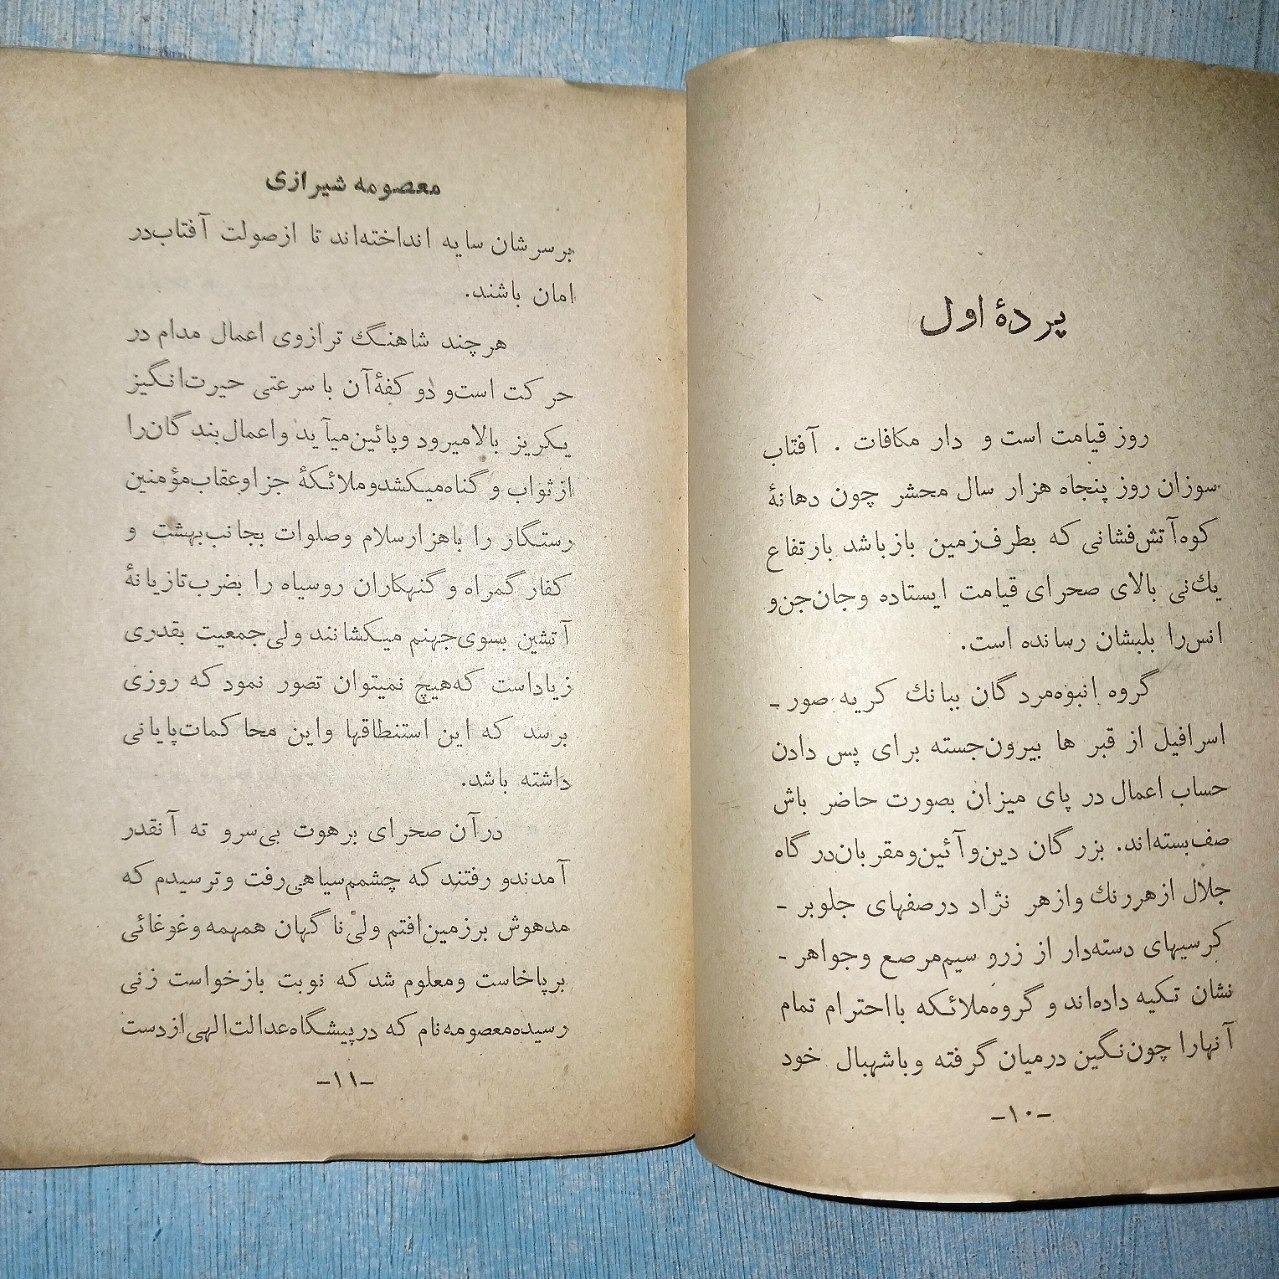 پردهٔ اول
روز قیامت است و دار مکافات . آفتاب
سوزان روز پنجاه هزار سال محشر چون دهانهٔ
کوه‌آتش‌فشانی که بطرف‌زمین بازباشد بارتفاع
یك‌نی بالای صحرای قیامت ایستاده وجان‌جن‌و
انس‌را بلبشان رسانده است.
گروه انبوه‌مردگان ببانك کریه صور ـ
اسرافیل از قبر ها بیرون‌جسته برای پس دادن
حساب اعمال در پای میزان بصورت حاضر باش
صف‌بسته‌اند. بزرگان دین‌وآئین‌ومقربان‌درگاه
جلال ازهررنك وازهر نژاد درصفهای جلوبر ـ
کرسیهای دسته‌دار از زرو سیم‌مرصع وجواهر ـ
نشان تکیه داده‌اند و گروه‌ملائکه بااحترام تمام
آنهارا چون‌نگین درمیان گرفته وباشهبال خود
ـ۱۰ـ
معصومه شیرازی
برسرشان سایه انداخته‌اند تا ازصولت آفتاب‌در
امان باشند.
هرچند شاهنگ ترازوی اعمال مدام در
حرکت است‌و دو کفهٔ‌آن باسرعتی حیرت‌انگیز
یکریز بالامیرود وپائین‌میآید واعمال‌بندگان‌را
ازثواب و گناه‌میکشدوملائکهٔ جزاوعقاب‌مؤمنین
رستگار را باهزارسلام وصلوات بجانب‌بهشت و
کفار گمراه و گنهکاران روسیاه را بضرب‌تازیانهٔ
آتشین بسوی‌جهنم میکشانند ولی‌جمعیت بقدری
زیاداست که‌هیچ نمیتوان تصور نمود که روزی
برسد که این استنطاقها واین محاکمات‌پایانی
داشته باشد.
درآن صحرای برهوت بی‌سرو ته آنقدر
آمدندو رفتند که چشمم‌سیاهی‌رفت وترسیدم که
مدهوش برزمین‌افتم ولی‌ناگهان همهمه وغوغائی
برپاخاست ومعلوم شدکه نوبت بازخواست زنی
رسیده‌معصومه‌نام که درپیشگاه‌عدالت‌الهی‌ازدست
ـ۱۱ـ